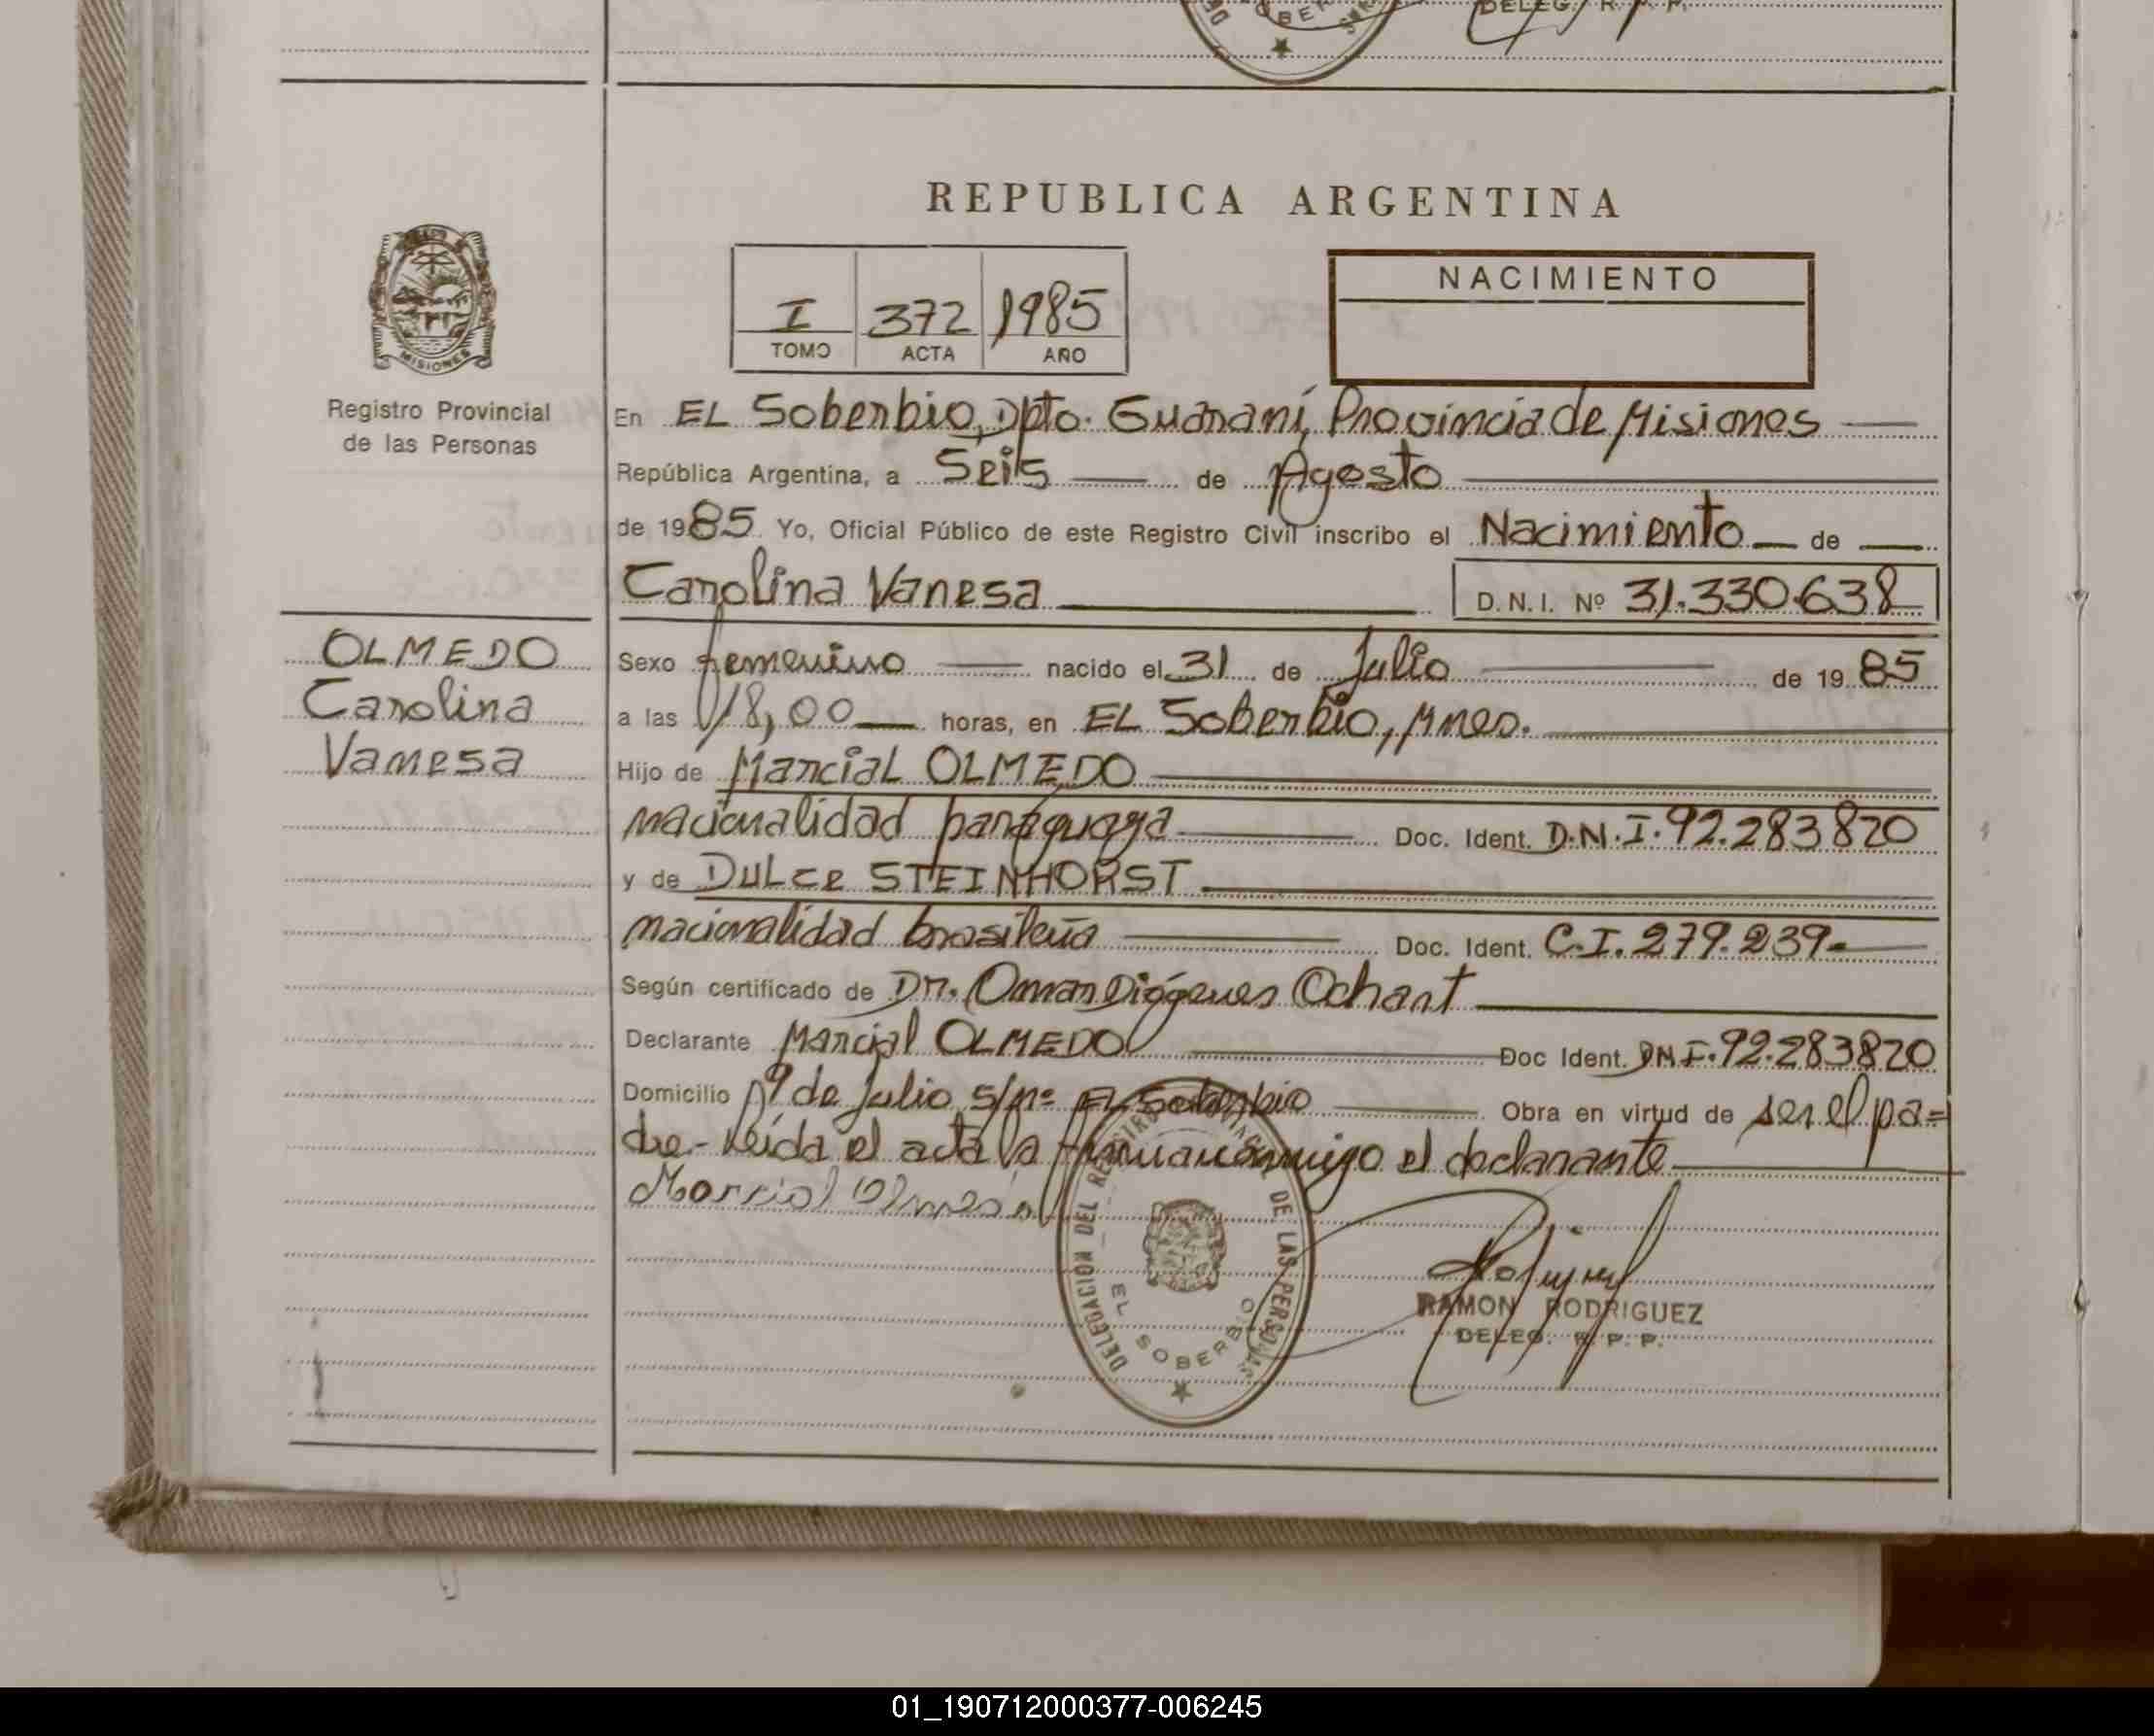 DELEG. R. P. P.
REPUBLICA ARGENTINA
I 372 1985
TOMO ACTA AÑO
NACIMIENTO
MISIONES
Registro Provincial
de las Personas
En EL Soberbio, Dpto. Guaraní, Provincia de Misiones
República Argentina, a Seis de Agosto
de 1985 Yo, Oficial Público de este Registro Civil inscribo el Nacimiento de
Carolina Vanesa D.N.I. Nº 31.330.638
OLMEDO
Carolina
Vanesa
Sexo femenino nacido el 31 de Julio de 1985
a las 18,00 horas, en EL Soberbio, Mnes.
Hijo de Marcial OLMEDO
nacionalidad paraguaya Doc. Ident. D.N.I. 92.283820
y de Dulce STEINHORST
nacionalidad brasileña Doc. Ident. C.I. 279.239-
Según certificado de Dr. Omar Diógenes Ochart
Declarante Marcial OLMEDO Doc Ident. DNI. 92.283820
Domicilio 9 de Julio s/nº El Soberbio Obra en virtud de ser el pa=
dre - Leída el acta la firma conmigo el declarante
Marcial Olmedo
DELEGACION DEL REGISTRO PROVINCIAL DE LAS PERSONAS
EL SOBERBIO
RAMON RODRIGUEZ
DELEG. R. P. P.
01_190712000377-006245